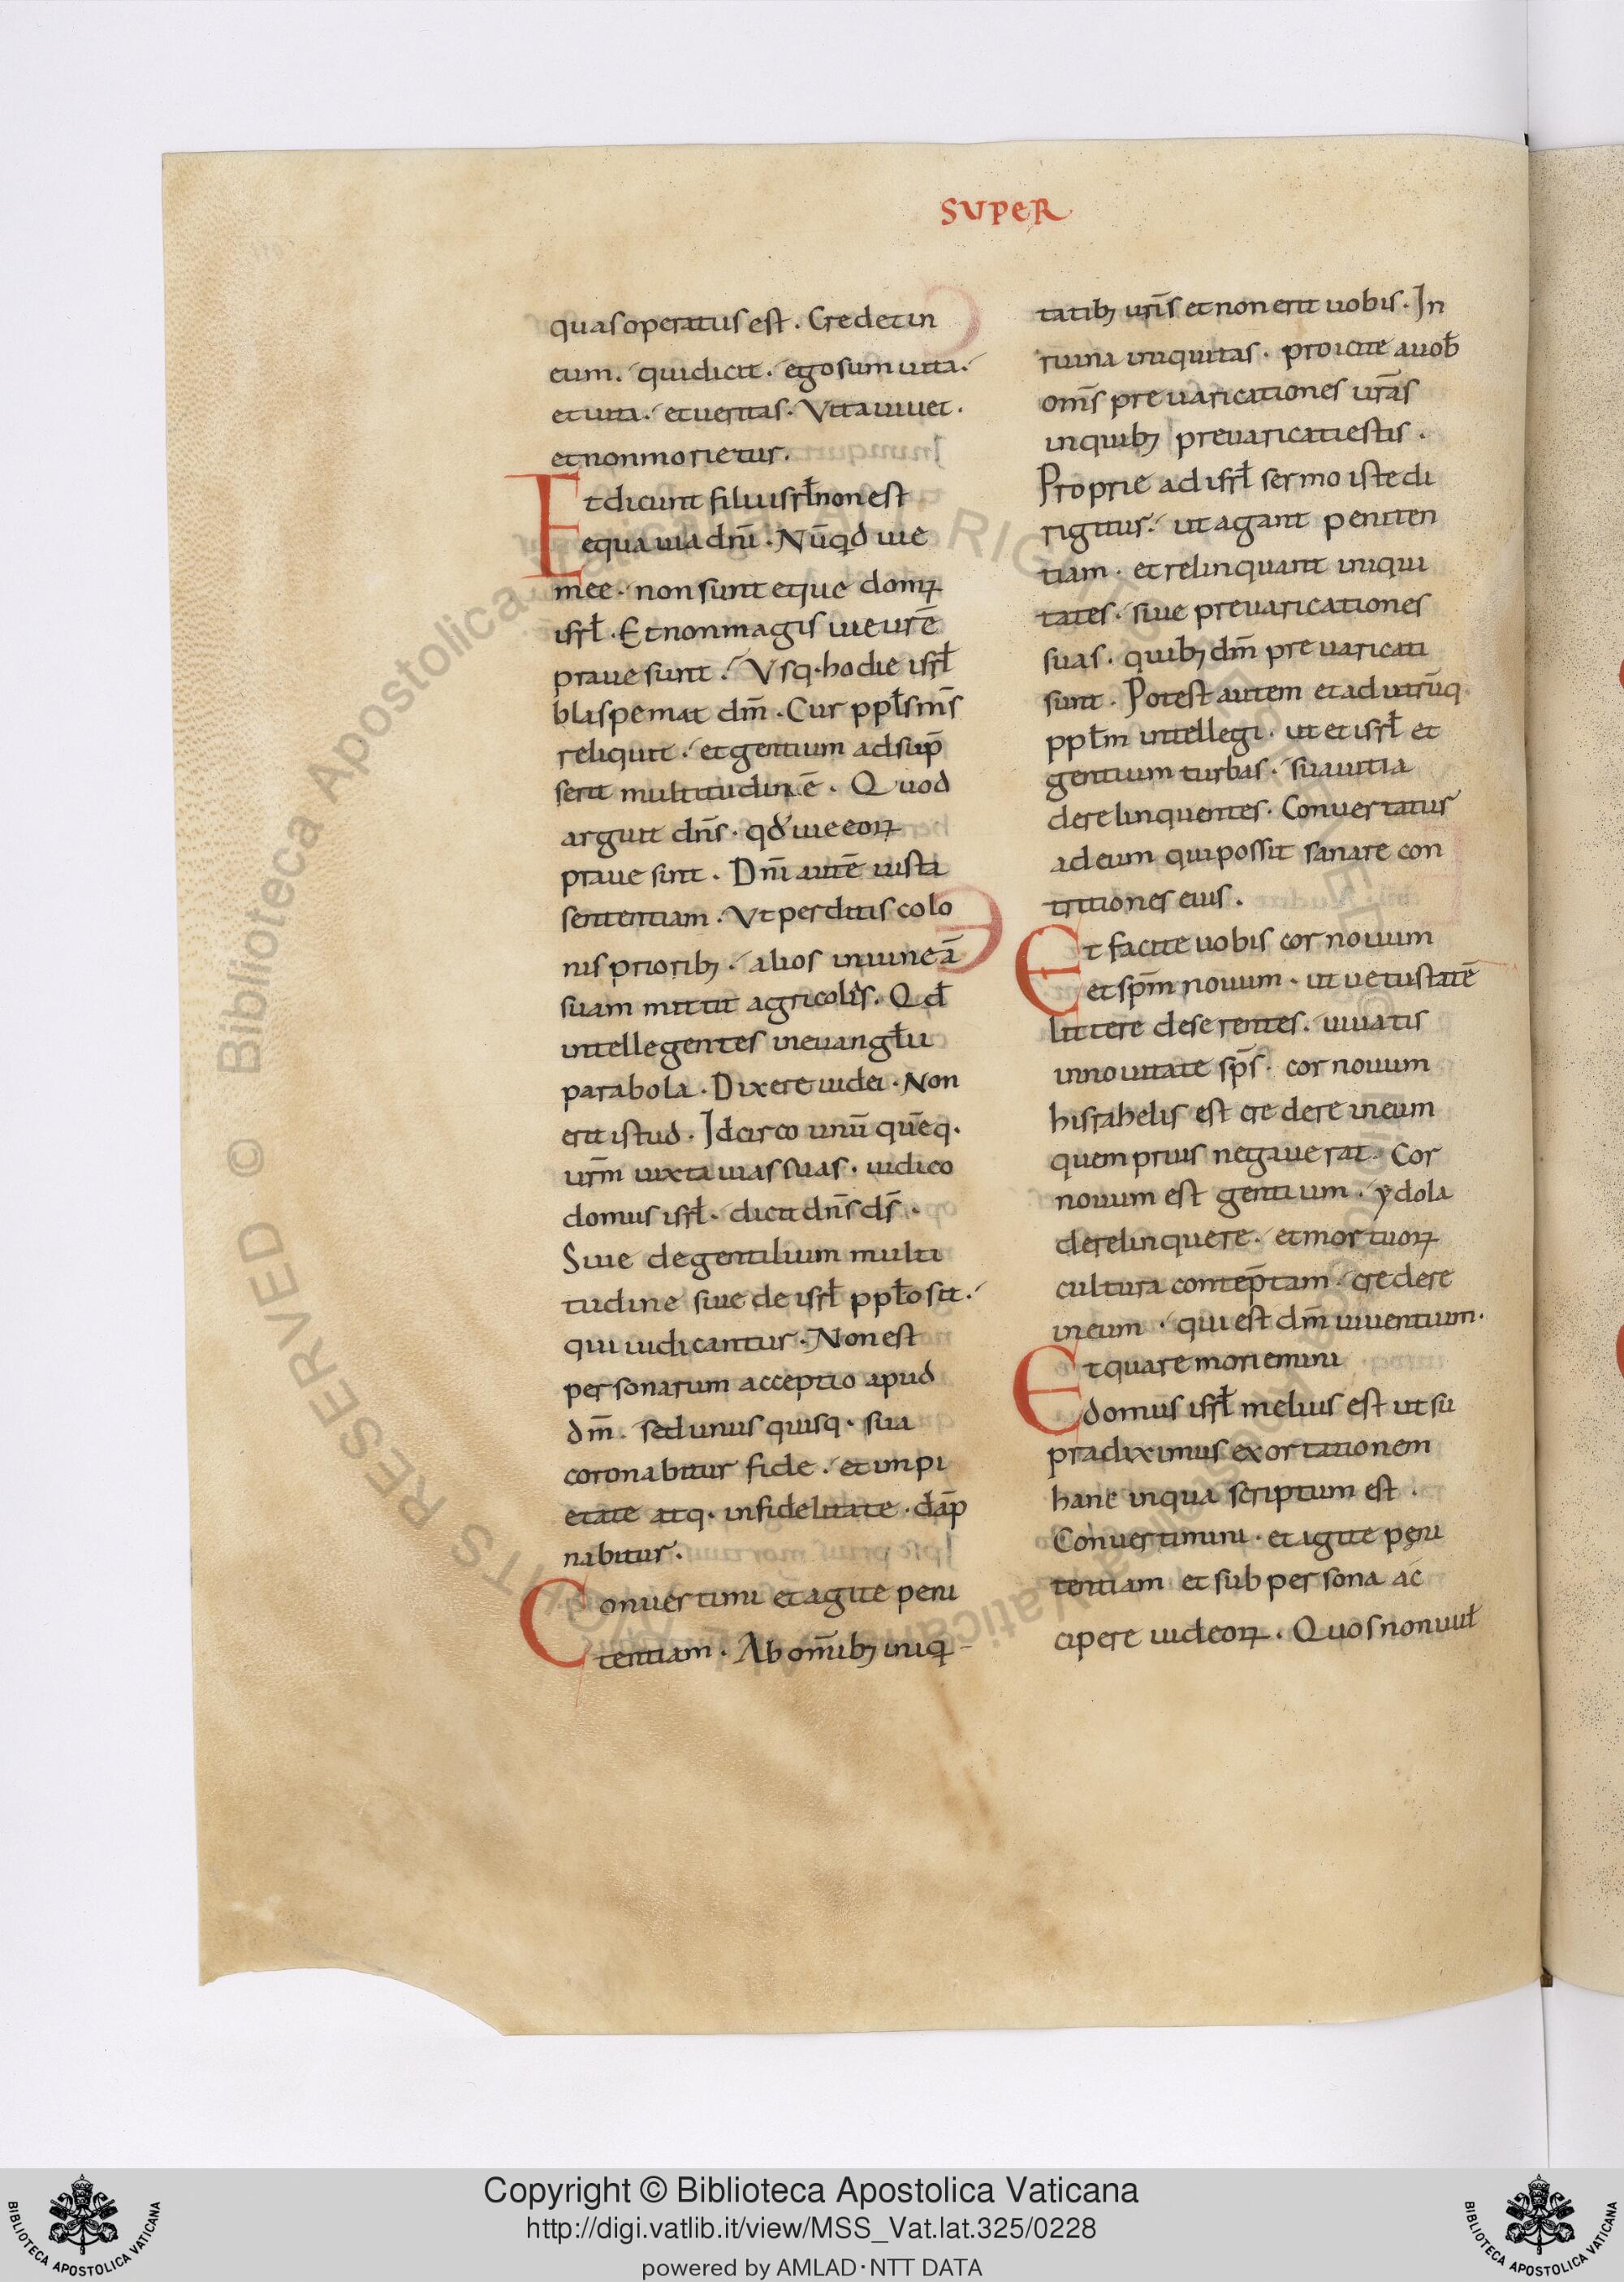 SUPER
quas operatus est. Credet in
eum. qui dicit. ego sum uita.
et uita. et ueritas. Vita uiuet.
et non morietur.
Et dicunt filii isrł non est
equa uia dnī. Nūqd uie
mee. non sunt eque domꝰ
isrł. Et non magis uie urē
praue sunt. Vsq. hodie isrł
blaspemat dm̄. Cur ppłs m̄s
reliquit. et gentium adsūp
serit multitudinē. Quod
arguit dn̄s. qđ uie eoꝝ
praue sint. Dnī autē iusta
sententiam. Vt perditis colo
nis priorib; alios in uineā
suam mittit agricolis. Qđ
intellegentes in euangłii
parabola. Dixere iudei. Non
erit istud. Idcirco unū quēq.
urm̄ iuxta uias suas. iudico
domus isrł. dicit dn̄s ds̄.
Siue de gentilium multi
tudine siue de isrł ppło sit.
qui iudicantur. Non est
personarum acceptio apud
dm̄. sed unus quisq. sua
coronabitur fide. et impi
etate atq. infidelitate. dāp
nabitur.
Conuertimi et agite peni
tentiam. Ab om̄ib; iniq -
tatib; uris̄ et non erit uobis. In
ruina iniquitas. proicite a uob̄
om̄s preuaricationes urās
in quib; preuaricati estis.
Proprie ad isrł sermo iste di
rigitur. ut agant peniten
tiam. et relinquant iniqui
tates. siue preuaricationes
suas. quib; dm̄ preuaricati
sunt. Potest autem et ad utrūq.
ppłm intellegi. ut et isrł et
gentium turbas. sua uitia
derelinquentes. Conuertatur
ad eum qui possit sanare con
tritiones eius.
Et facite uobis cor nouum
et spm̄ nouum. ut uetustatē
littere deserentes. uiuatis
in nouitate sps̄. cor nouum
hisrahelis est credere in eum
quem prius negauerat. Cor
nouum est gentium. ydola
derelinquere. et mortuoꝝ
cultura contēptam. credere
in eum. qui est dm̄ uiuentium.
Et quare moriemini
domus isrł melius est ut su
pradiximus exortationem
hanc in qua scriptum est.
Conuertimini. et agite peni
tentiam et sub persona ac
cipere iudeoꝝ. Quos non uuł
Copyright © Biblioteca Apostolica Vaticana
http://digi.vatlib.it/view/MSS_Vat.lat.325/0228
powered by AMLAD·NTT DATA
BIBLIOTECA APOSTOLICA VATICANA
BIBLIOTECA APOSTOLICA VATICANA